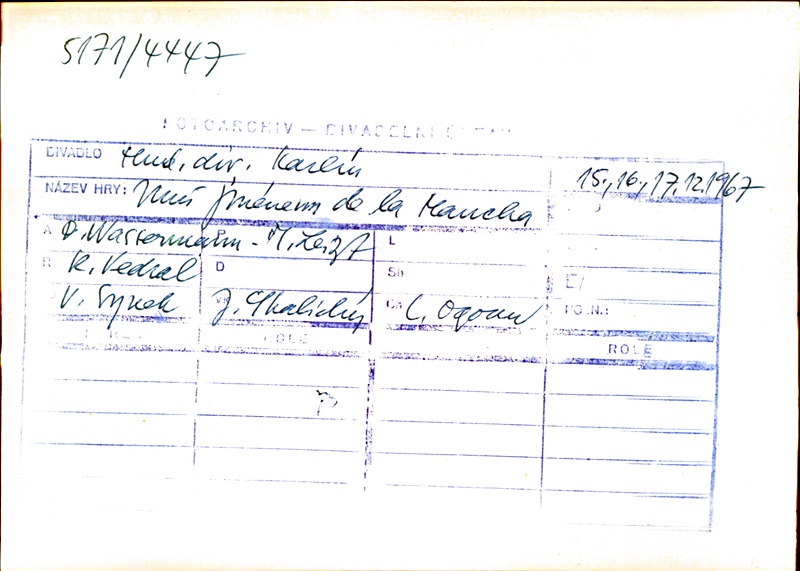 5171/4447
FOTOARCHIV — DIVADELNÍ ÚSTAV
DIVADLO Hud. div. Karlín 15., 16., 17.12.1967
NÁZEV HRY: Muž jménem de la Mancha
A D. Wassermann - P M. Leigh L
R K. Vedral D Sb E/
V. Synek J. Skalický Ch L. Ogoun FO.N.:
ROLE ROLE